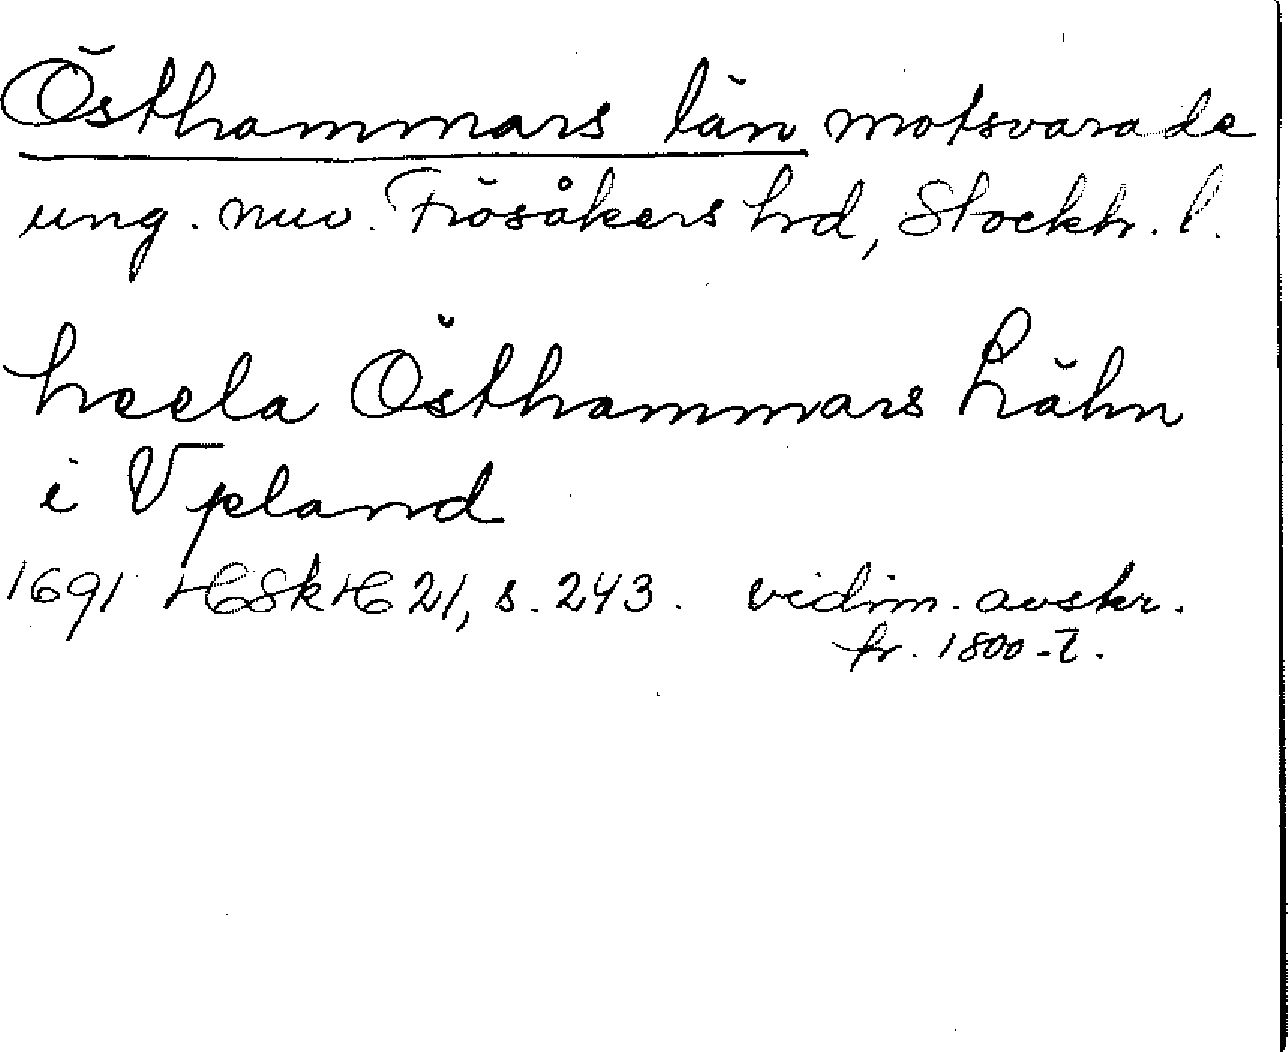 Östhammars län motsvarade
ung. nuv. Frösåkers hrd, Stockh. l.
heela Östhammars Lähn
i Vpland
1691 HSkH 21, s. 243. vidim. avskr.
fr. 1800-t.